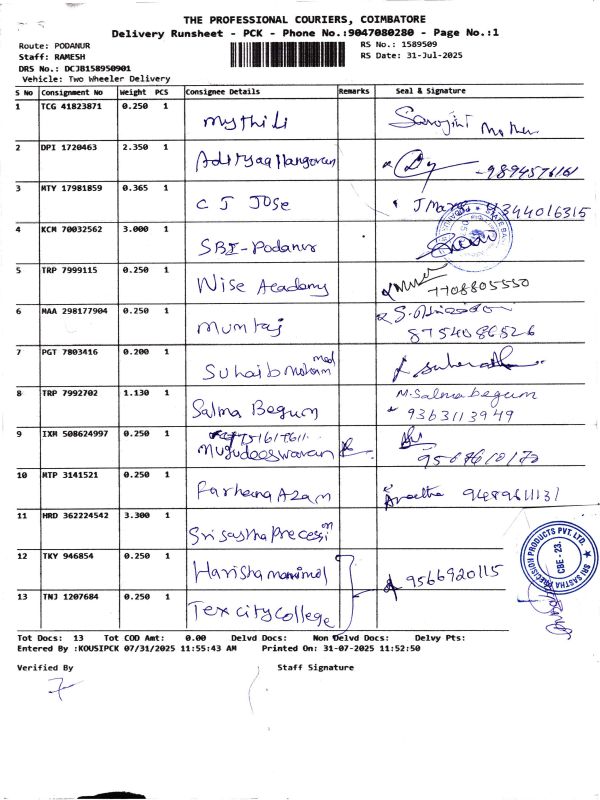 THE PROFESSIONAL COURIERS, COIMBATORE
Delivery Runsheet - PCK - Phone No.:9047080280 - Page No.:1
Route: PODANUR
RS No.: 1589509
Staff: RAMESH
RS Date: 31-Jul-2025
DRS No.: DCJB158950901
Vehicle: Two Wheeler Delivery
S No Consignment No Weight PCS Consignee Details Remarks Seal & Signature
1 TCG 41823871 0.250 1 Mythili Sarojini Mother
2 DPI 1720463 2.350 1 - 9894576161
3 MTY 17981859 0.365 1 C J Jose 9344016315
4 KCM 70032562 3.000 1 SBI-Podanur
5 TRP 7999115 0.250 1 Wise Academy 7708805550
6 MAA 298177904 0.250 1 Mumtaj 8754086526
7 PGT 7803416 0.200 1 Suhaib Moham med
8 TRP 7992702 1.130 1 Salma Begum M. Salma begum 9363113949
9 IXM 508624997 0.250 1 Mugudeeswaran
10 MTP 3141521 0.250 1 Farhana Azam
11 HRD 362224542 3.300 1 Sri sastha Precessi on
12 TKY 946854 0.250 1 Harisha 9566920115
13 TNJ 1207684 0.250 1 Tex city College
SRI SASTHA PRECISION PRODUCTS PVT. LTD.
CBE - 23.
Tot Docs: 13 Tot COD Amt: 0.00 Delvd Docs: Non Delvd Docs: Delvy Pts:
Entered By :KOUSIPCK 07/31/2025 11:55:43 AM Printed On: 31-07-2025 11:52:50
Verified By Staff Signature